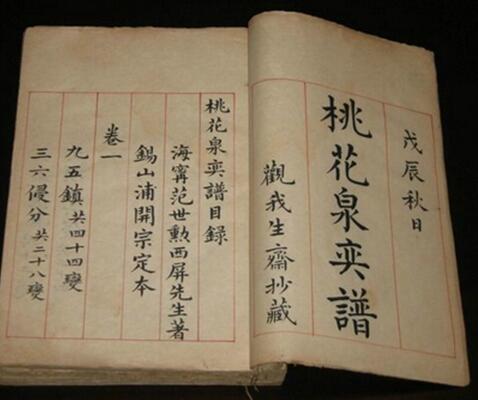 戊辰秋日
桃花泉奕譜
觀我生齋抄藏
桃花泉奕譜目錄
海寧范世勲西屏先生著
錫山浦開宗定本
卷一
九五鎮共四十四變
三六侵分共二十八變